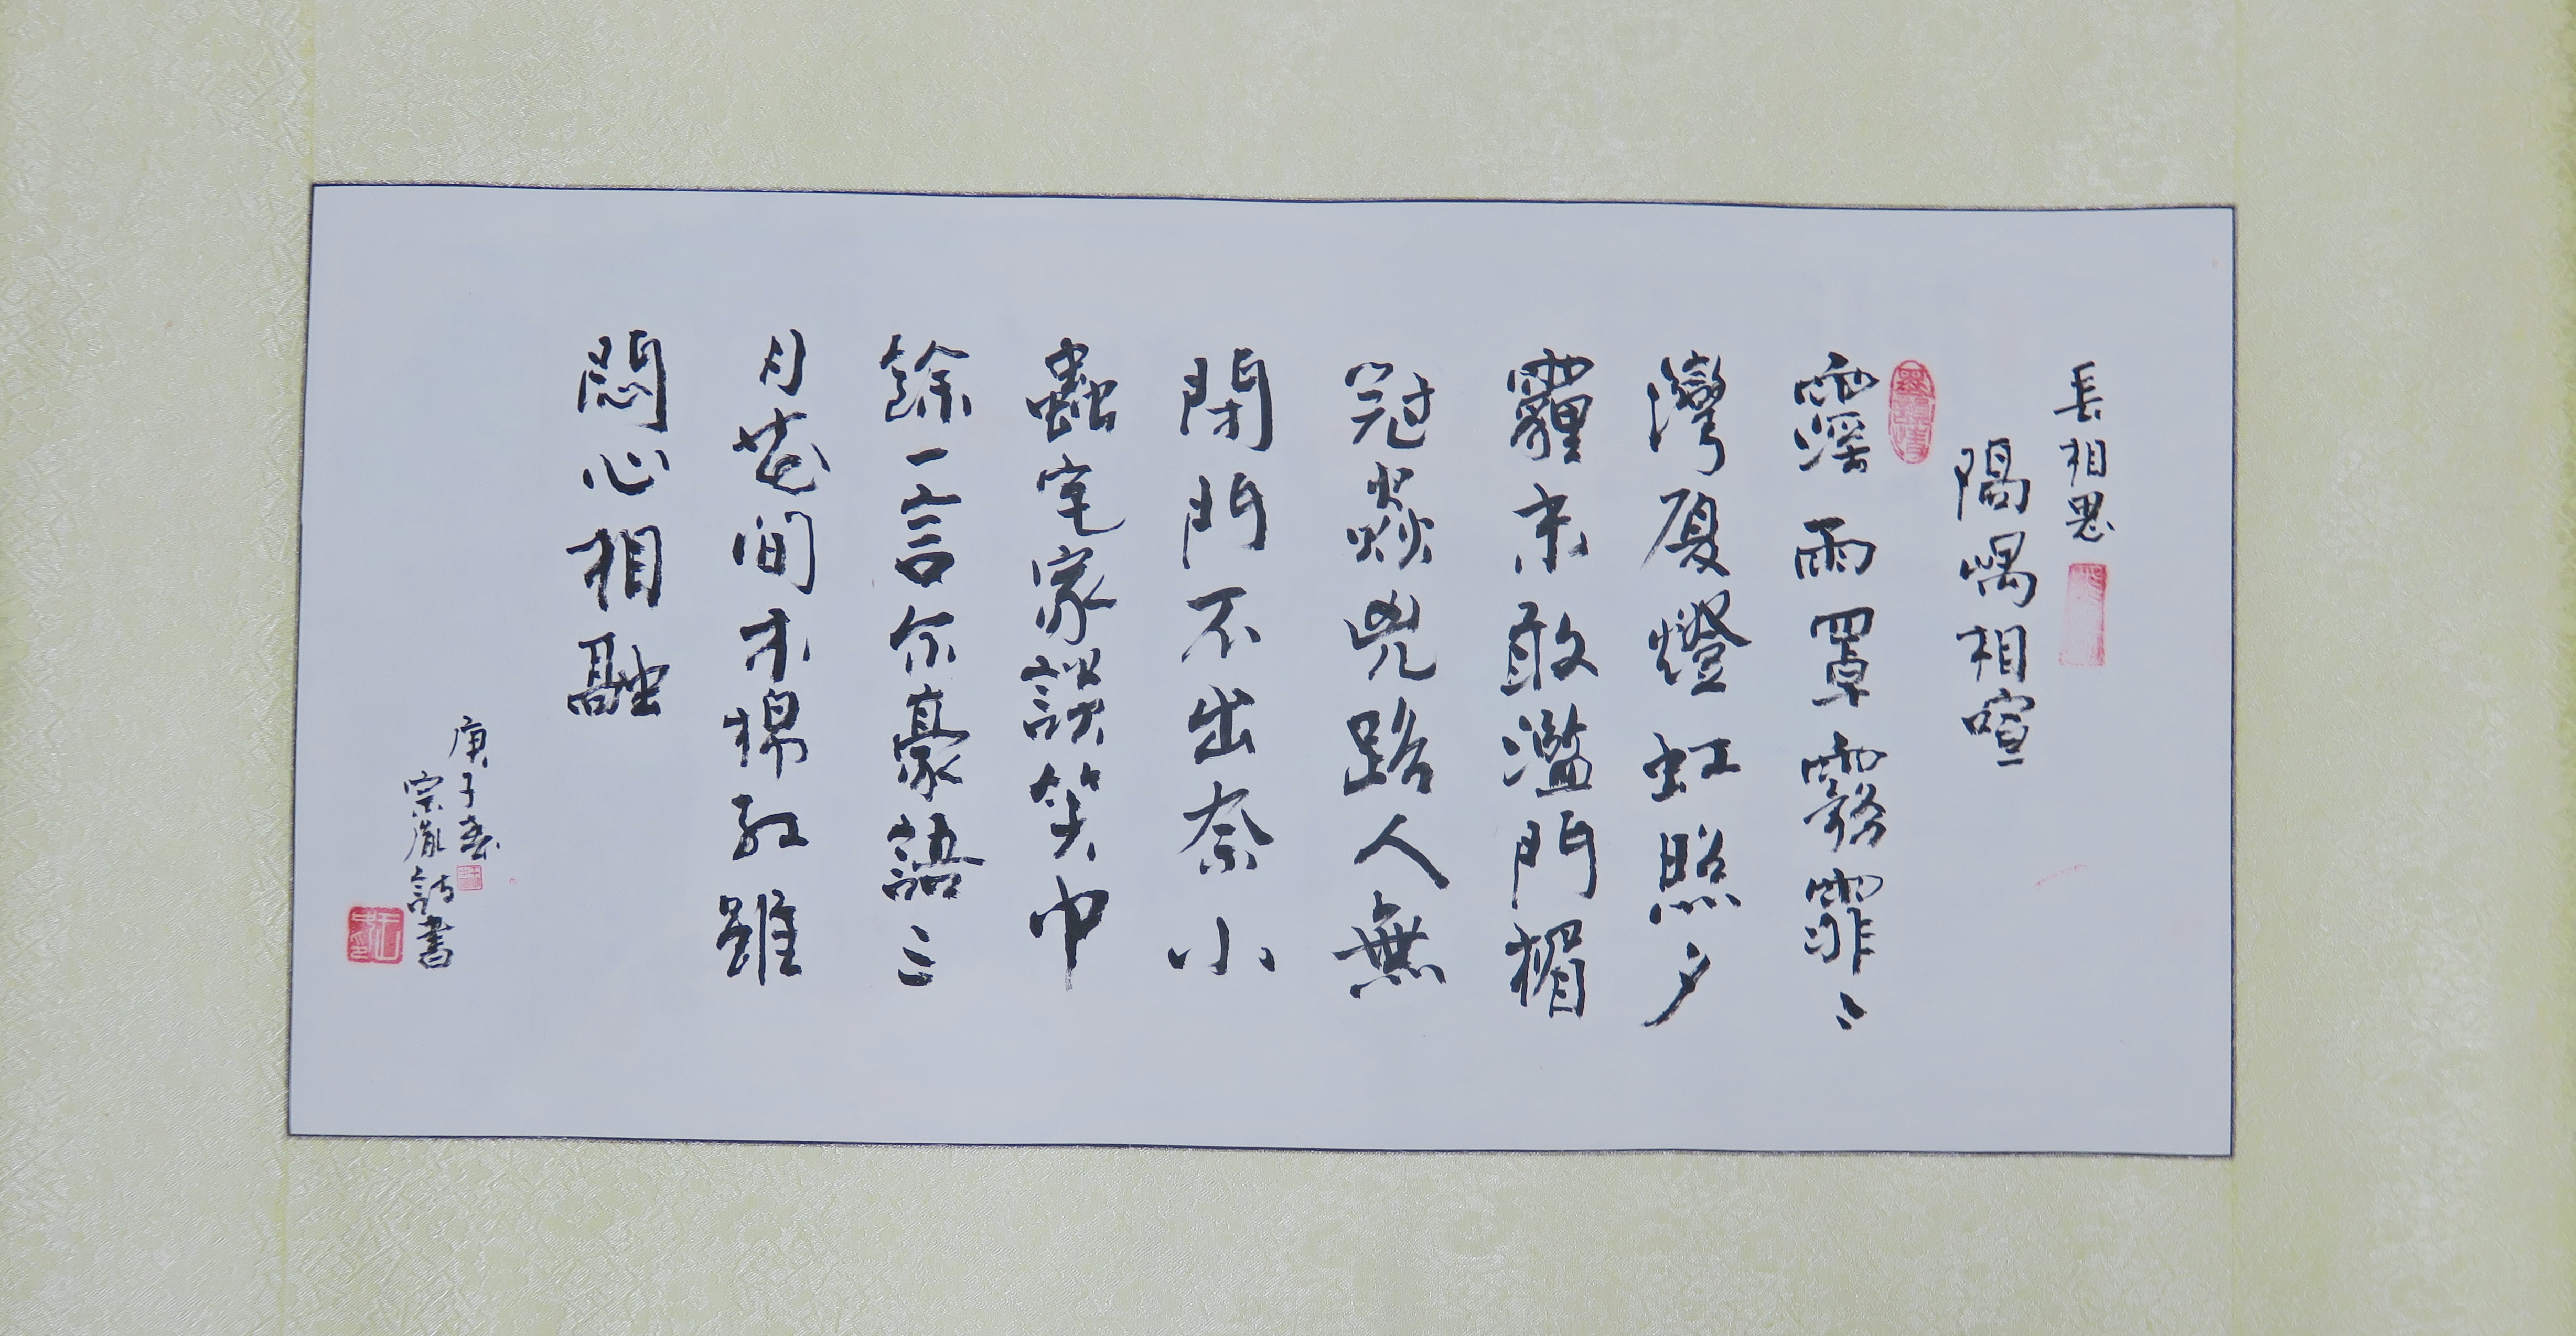 長相思
隔喁相喧
霪雨罩霧霏〻
灣廈燈虹照夕
霾未敢濫門楣
冠焱兇路人無
閑門不出奈小
蟲宅家談笑中
餘一言尔豪語〻
月花間木棉紅雖
悶心相融
庚子春
宗胤詩書